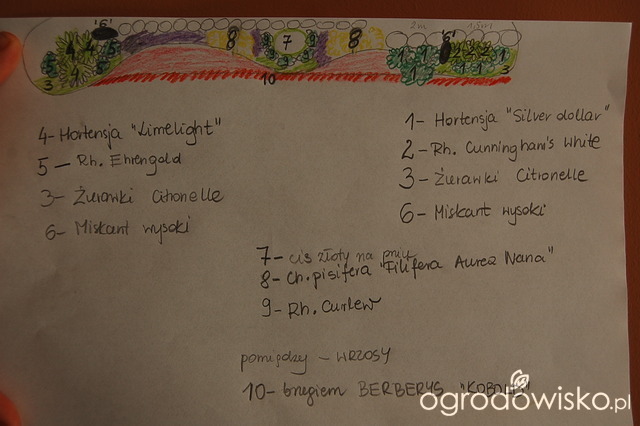 '6' 2m 1,5m
4 4 5 8 7 8 '6'
5 5 9 9 1 1 2 2 2
3 4 5 9 9 1 3
10
4- Hortensja "Limelight"
5 - Rh. Ehrengold
3- Żurawki Citronelle
6- Miskant wysoki
1- Hortensja "Silver dollar"
2- Rh. Cunningham's White
3- Żurawki Citronelle
6- Miskant wysoki
7- cis złoty na pniu
8- Ch. pisifera "Filifera Aurea Nana"
9- Rh. Curlew
pomiędzy - WRZOSY
10- brzegiem BERBERYS "KOBOLD"
ogrodowisko.pl